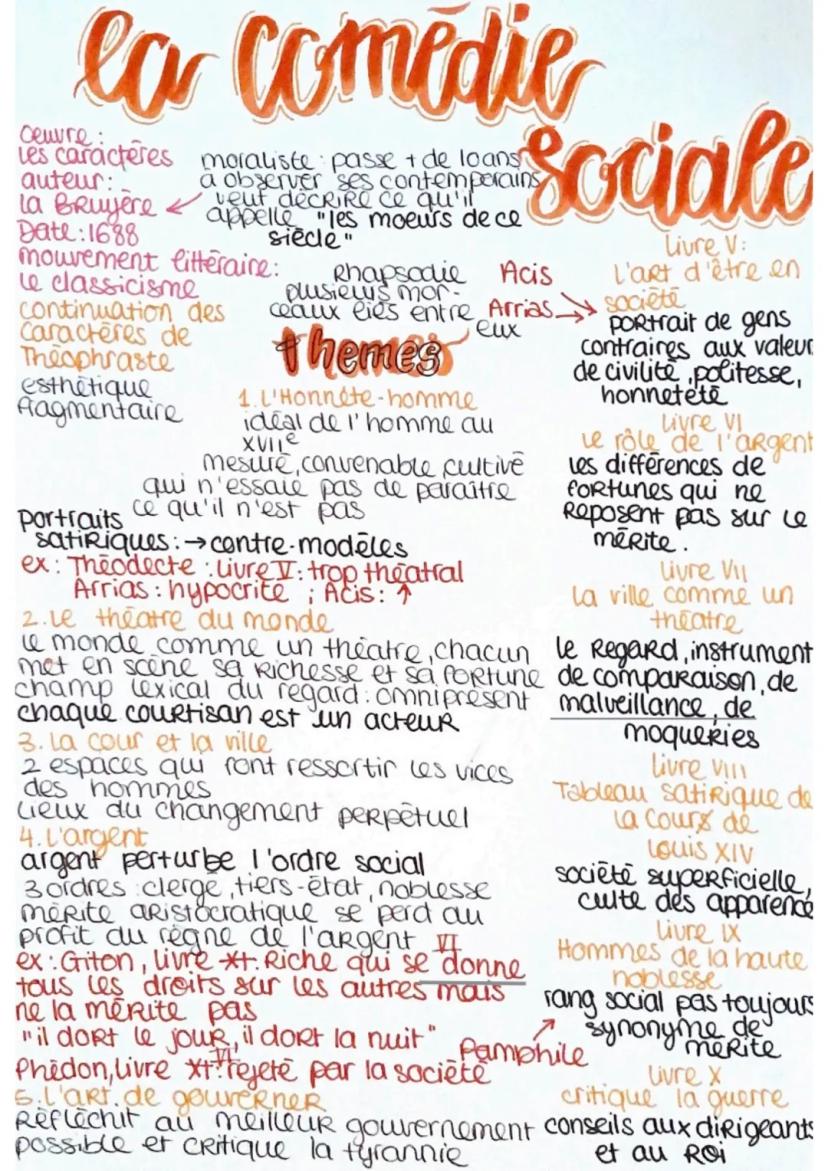 la comédie
sociale
Œuvre :
les caractères
auteur :
la BRuyère
Date : 1688
mouvement littéraire :
le classicisme
continuation des
Caractères de
Théophraste
esthétique
fragmentaire
moraliste : passe + de 10 ans
à observer ses contemporains
veut décrire ce qu'il
appelle "les moeurs de ce
siècle"
Rhapsodie
plusieurs mor-
ceaux liés entre
eux
Acis
Arrias
themes
1. L'Honnête-homme
idéal de l'homme au
XVIIe
mesuré, convenable, cultivé
qui n'essaie pas de paraître
ce qu'il n'est pas
portraits
satiriques : → contre-modèles
ex : Théodecte : livre V : trop théatral
Arrias : hypocrite ; Acis : ↑
2. Le théatre du monde
le monde comme un théatre, chacun
met en scène sa Richesse et sa fortune
champ lexical du regard : omniprésent
chaque courtisan est un acteur
3. la cour et la ville
2 espaces qui font ressortir les vices
des hommes
lieux du changement perpétuel
4. l'argent
argent perturbe l'ordre social
3 ordres : clergé, tiers-état, noblesse
mérite aristocratique se perd au
profit du règne de l'argent
ex : Giton, livre VI : Riche qui se donne
tous les droits sur les autres mais
ne la mérite pas
"il dort le jour, il dort la nuit"
Phédon, livre VI : rejeté par la société
5. l'art de gouverner
Réfléchit au meilleur gouvernement
possible et critique la tyrannie
Livre V :
l'art d'être en
société
portrait de gens
contraires aux valeur
de civilité, politesse,
honneteté
Livre VI
Le rôle de l'argent
les différences de
fortunes qui ne
Reposent pas sur le
mérite.
Livre VII
La ville comme un
théatre
le Regard, instrument
de comparaison, de
malveillance, de
moqueries
Livre VIII
Tableau satirique de
la Cour de
Louis XIV
société superficielle,
culte des apparence
Livre IX
Hommes de la haute
noblesse
rang social pas toujours
synonyme de
mérite
Pamphile
Livre X
critique la guerre
conseils aux dirigeants
et au Roi